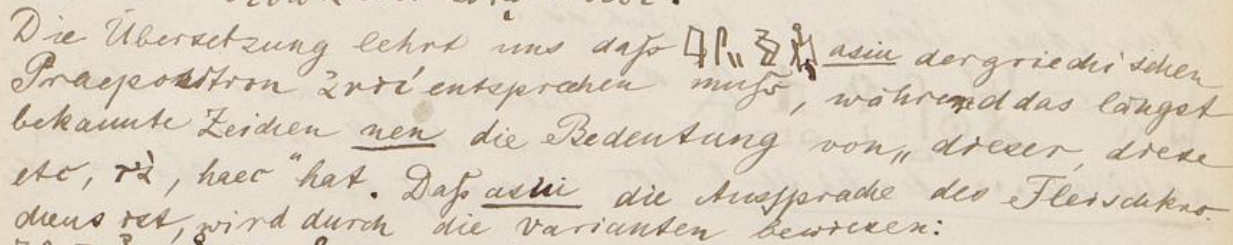 Die Übersetzung lehrt uns daſs asui der griechischen
Praeposition ἀντί entsprechen muſs, während das längst
bekannte Zeichen nen die Bedeutung von „dieser, diese
etc, τὰ, haec" hat. Daſs asui die Aussprache des Fleischkno-
chens ist, wird durch die Varianten bewiesen: